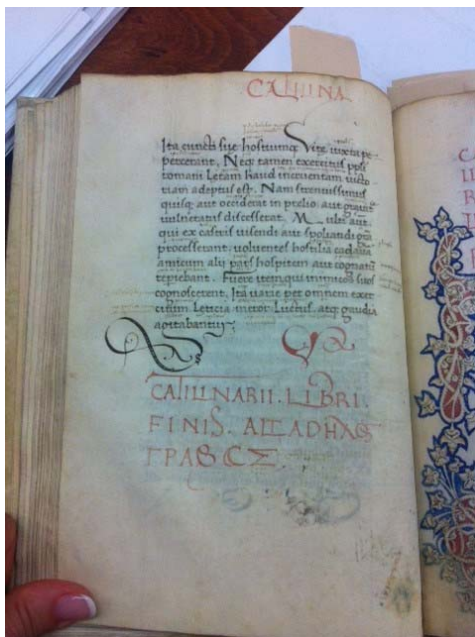 CATILINA
Ita cuncti sue hostiumq; vite iuxta pe
percerant. Neq; tamen exercitus ppli
romani Letam haud incruentam victo
riam adeptus est. Nam strenuissimus
quisq; aut occiderat in prelio: aut grauit
vulneratus discesserat. Multi aut
qui ex castris uisendi aut spoliandi gra
processerant, voluentes hostilia cadauera
amicum alii pars hospitem aut cognatū
repiebant. Fuere item qui inimicos suos
cognoscerent. Ita uarie per omnem exer
citum Leticia meror Luctus. atq; gaudia
agitabantur;
CATILINARII. LIBRI.
FINIS.